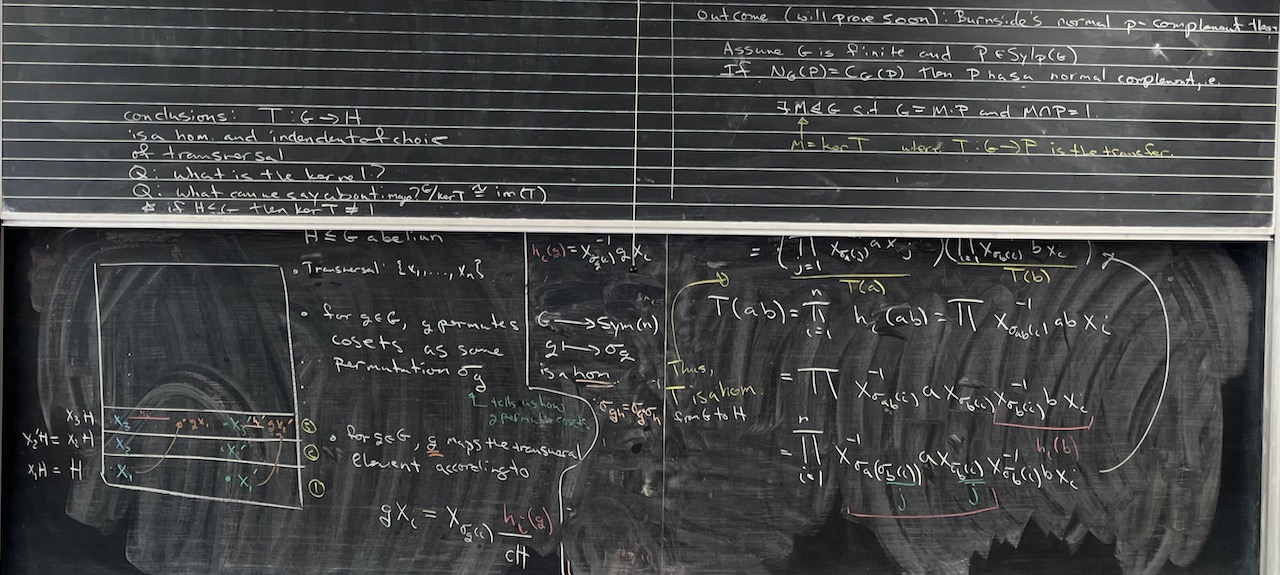 conclusions: T: G → H
is a hom. and indendent of choice
of transversal
Q: what is the kernel?
Q: what can we say about image? G/ker T ≅ im(T)
* if H ≤ G then ker T ≠ 1
Outcome (will prove soon): Burnside's normal p-complement
Assume G is finite and P ∈ Syl_p(G)
If N_G(P) = C_G(P) then P has a normal complement, i.e.
∃ M ⊴ G s.t. G = M·P and M∩P = 1.
M = ker T where T: G → P is the transfer.
H ≤ G abelian
• Transversal {x_1, ..., x_n}
• for g∈G, g permutes
cosets as some
permutation σ_g
tells us how
g permutes cosets
• for g∈G, g maps the transversal
element according to
g x_i = x_{σ_g(i)} h_i(g)
∈H
x_3 H
x_2'H = x_2 H
x_1 H = H
x_3 h_i g x_1 x_3' h' g x_1'
x_2 x_2'
x_1 x_1'
③
②
①
h_i(g) = x_{σ_g(i)}^{-1} g x_i
G → Sym(n)
g ↦ σ_g
is a hom.
σ_{gh} = σ_g σ_h
Thus,
T is a hom.
from G to H
= (∏_{j=1}^{n} x_{σ_a(j)}^{-1} a x_j)(∏_{i=1}^{n} x_{σ_b(i)}^{-1} b x_i)
T(a) T(b)
T(ab) = ∏_{i=1}^{n} h_i(ab) = ∏ x_{σ_{ab}(i)}^{-1} ab x_i
= ∏ x_{σ_{ab}(i)}^{-1} a x_{σ_b(i)} x_{σ_b(i)}^{-1} b x_i
h_i(b)
= ∏_{i=1}^{n} x_{σ_a(σ_b(i))}^{-1} a x_{σ_b(i)} x_{σ_b(i)}^{-1} b x_i
j j